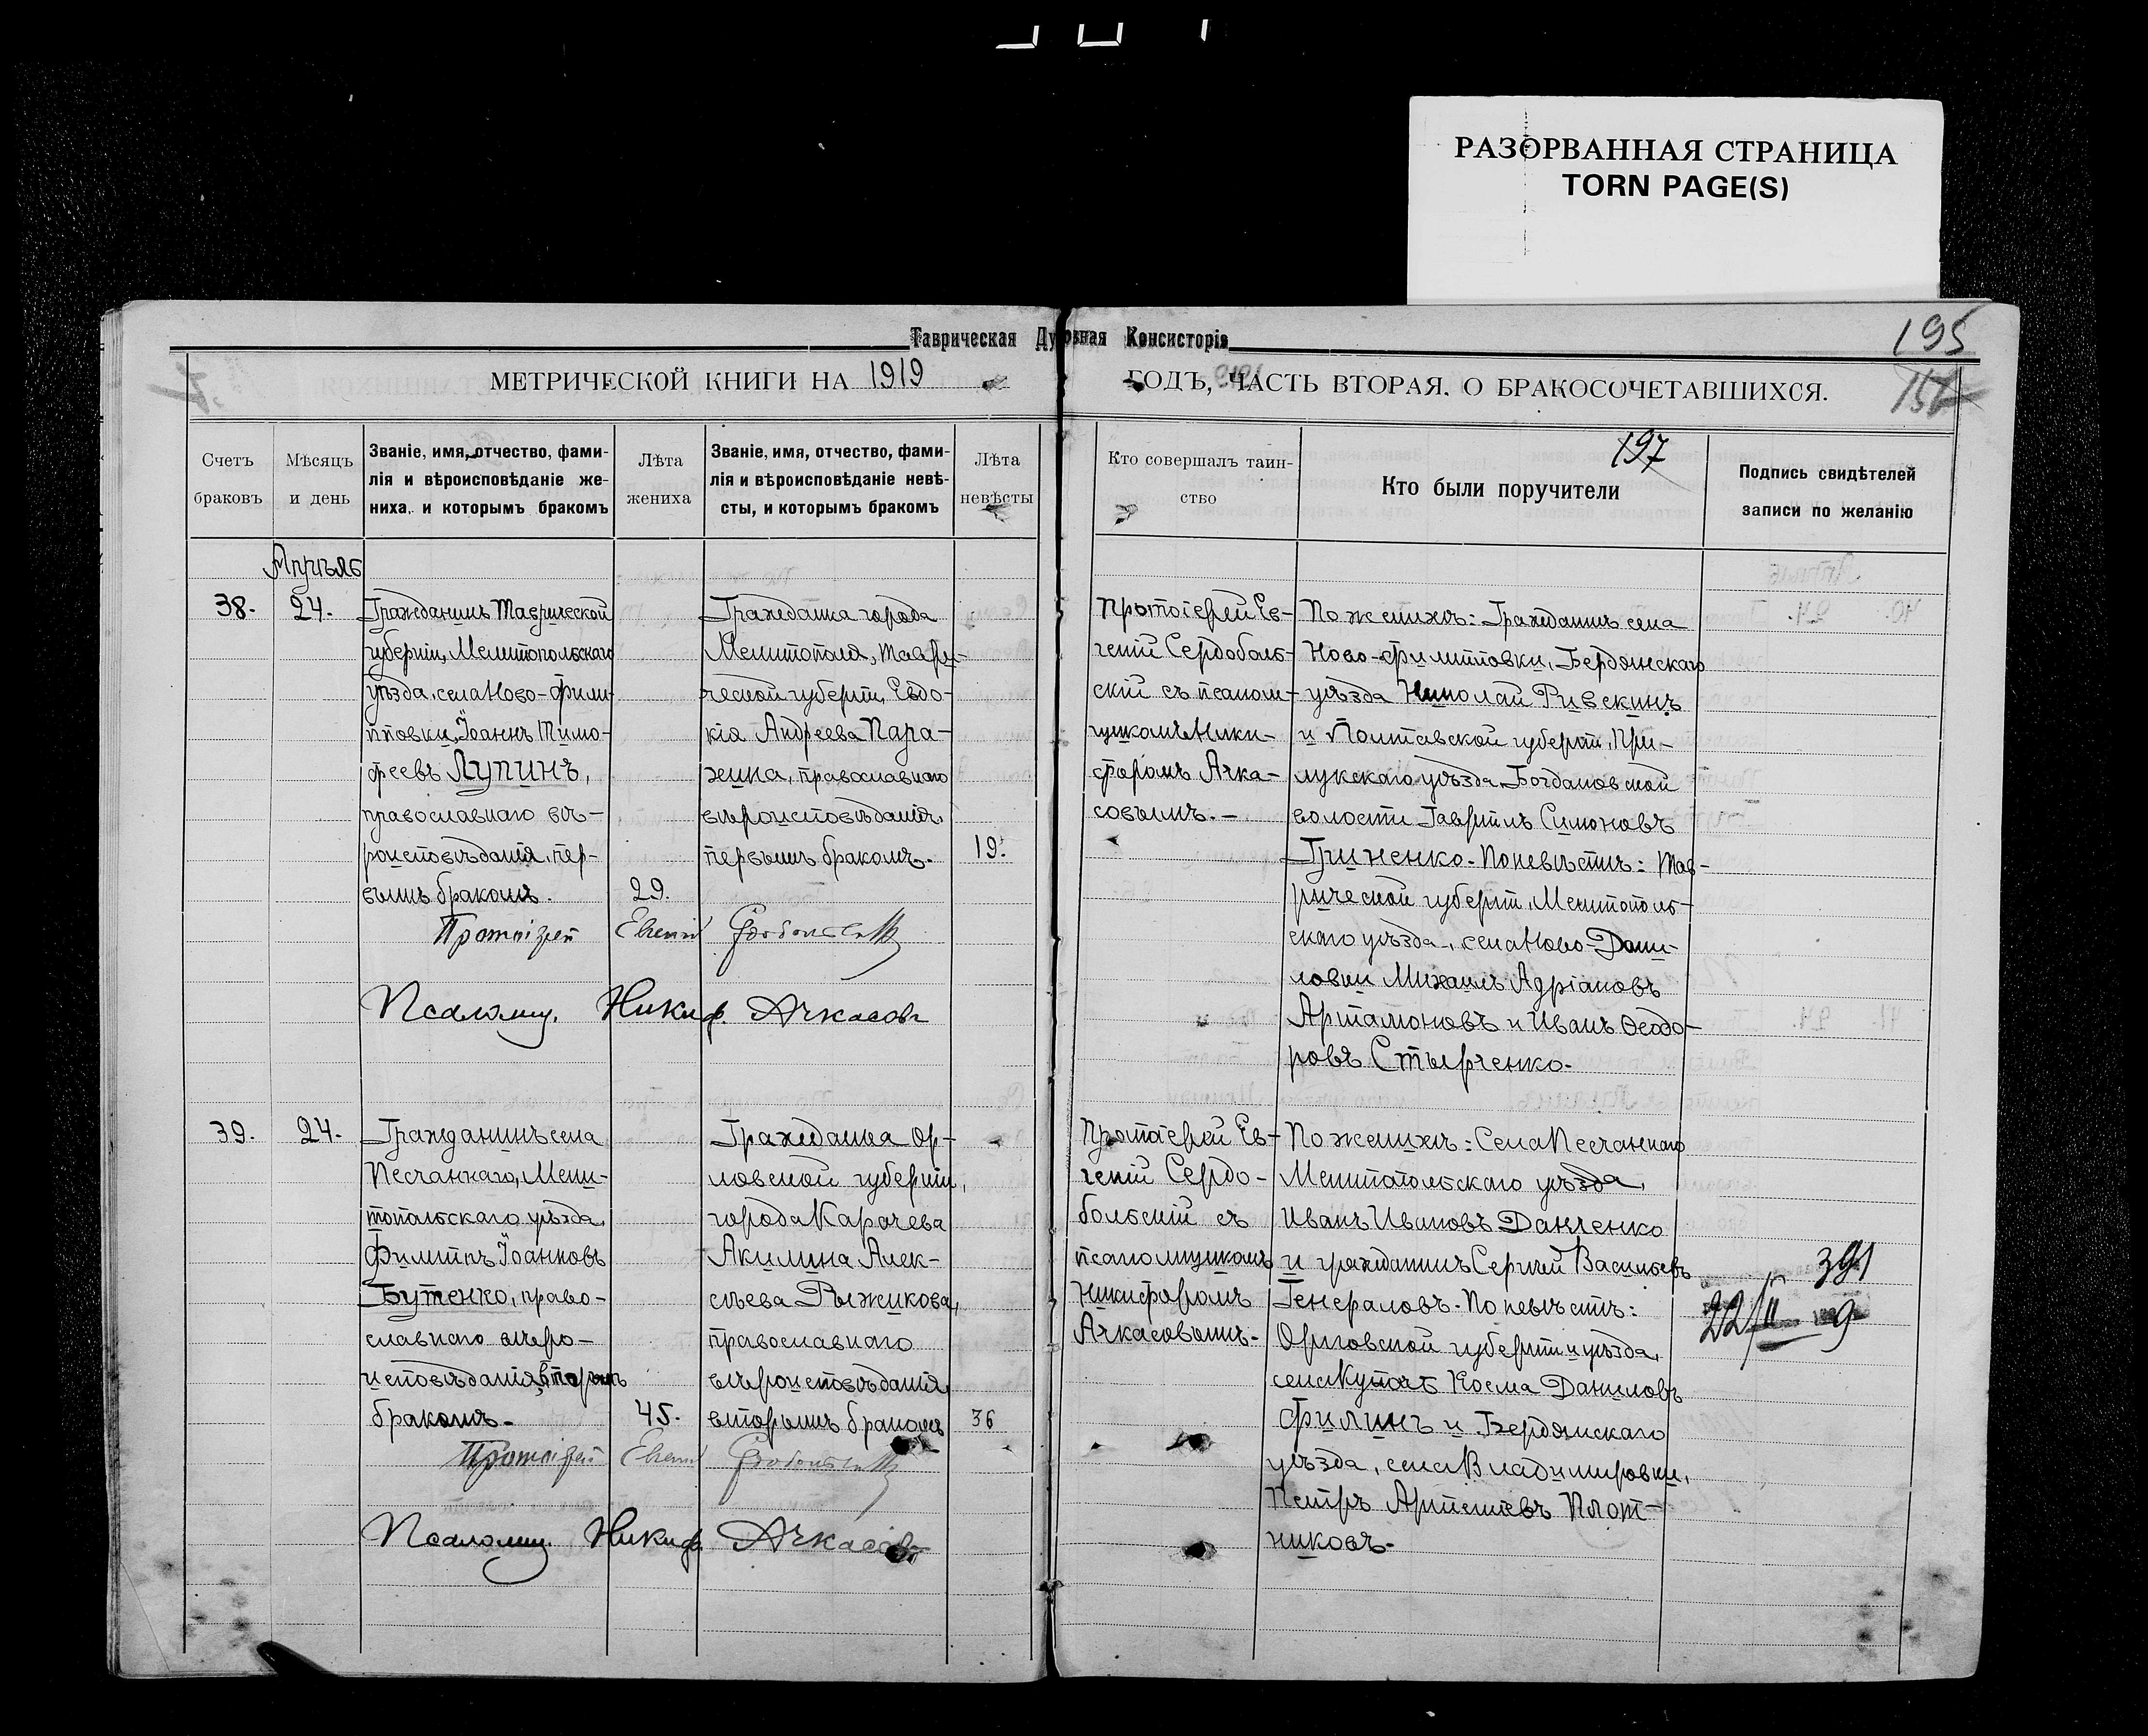 РАЗОРВАННАЯ СТРАНИЦА
TORN PAGE(S)
Таврическая Духовная Консисторія
195
МЕТРИЧЕСКОЙ КНИГИ НА 1919
ГОДЪ, ЧАСТЬ ВТОРАЯ, О БРАКОСОЧЕТАВШИХСЯ.
197
Счетъ браковъ
Мѣсяцъ и день
Званіе, имя, отчество, фами-
лія и вѣроисповѣданіе же-
ниха, и которымъ бракомъ
Лѣта жениха
Званіе, имя, отчество, фами-
лія и вѣроисповѣданіе невѣ-
сты, и которымъ бракомъ
Лѣта невѣсты
Кто совершалъ таин-
ство
Кто были поручители
Подпись свидѣтелей
записи по желанію
Апрѣль
38.
24.
Гражданинъ Таврической
губерніи, Мелитопольскаго
уѣзда, села Ново-Фили-
пповки, Іоаннъ Тимо-
феевъ Лупинъ,
православнаго вѣ-
роисповѣданія, пер-
вымъ бракомъ.
29.
Гражданка города
Мелитополя, Таври-
ческой губерніи, Евдо-
кія Андреева Пара-
хина, православнаго
вѣроисповѣданія,
первымъ бракомъ.
19.
Протоіерей Ев-
геній Сердоболь-
скій съ псалом-
щикомъ Ники-
форомъ Ачка-
совымъ.-
По женихѣ: Гражданинъ села
Ново-Филипповки, Бердянскаго
уѣзда Николай Ривскинъ
и Полтавской губерніи, При-
лукскаго уѣзда Богдановской
волости Гавріилъ Симоновъ
Гриненко. По невѣстѣ: Тав-
рической губерніи, Мелитополь-
скаго уѣзда, села Ново-Дани-
ловки Михаилъ Адріановъ
Артамоновъ и Иванъ Ѳеодо-
ровъ Стырченко.
Протоіерей Евгеній Сердобольскій
Псаломщ. Никиф. Ачкасовъ
39.
24.
Гражданинъ села
Песчаннаго, Мели-
топольскаго уѣзда,
Филиппъ Іоанновъ
Бутенко, право-
славнаго вѣро-
исповѣданія, вторымъ
бракомъ.
45.
Гражданка Ор-
ловской губерніи,
города Карачева
Акилина Алек-
сѣева Рыжикова,
православнаго
вѣроисповѣданія,
вторымъ бракомъ
36
Протоіерей Ев-
геній Сердо-
больскій съ
псаломщикомъ
Никифоромъ
Ачкасовымъ.
По женихѣ: Села Песчаннаго
Мелитопольскаго уѣзда,
Иванъ Ивановъ Данченко
и гражданинъ Сергѣй Васильевъ
Генераловъ. По невѣстѣ:
Орловской губерніи и уѣзда,
села Купогѣ Косма Даниловъ
Филинъ и Бердянскаго
уѣзда, села Владимировки,
Петръ Артемьевъ Плот-
никовъ.
391
Протоіерей Евгеній Сердобольскій
Псаломщ. Никиф. Ачкасовъ